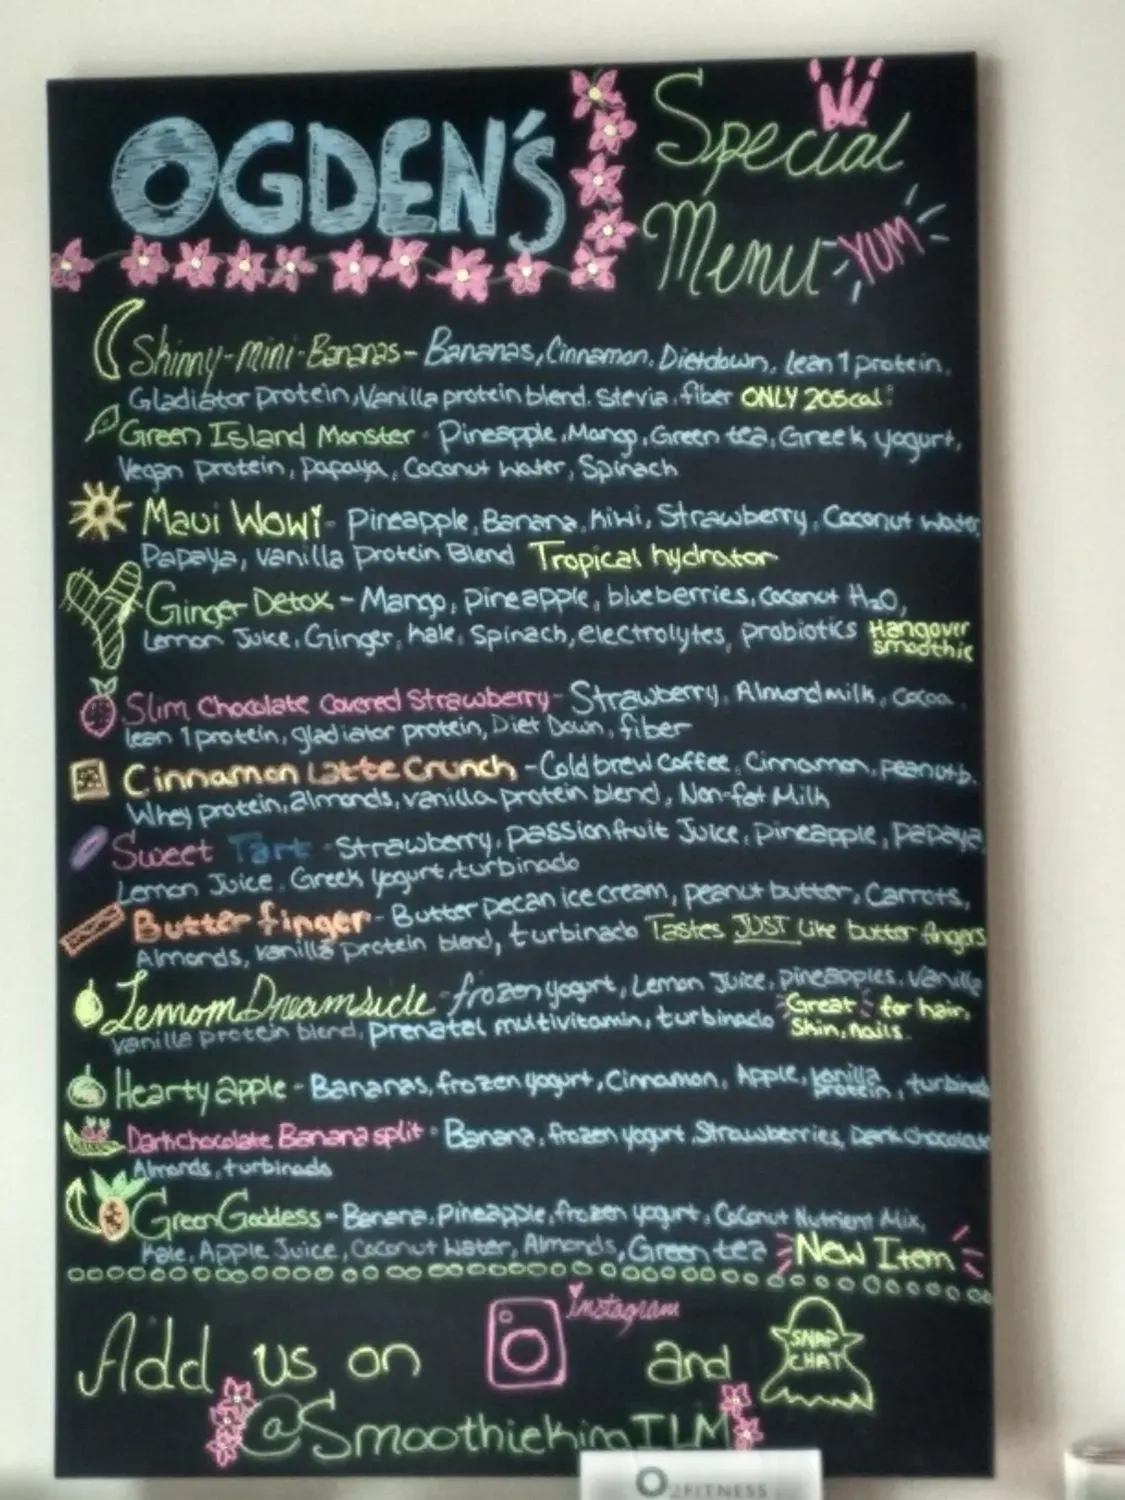 OGDEN'S
Special
Menu
YUM
Skinny-mini-Bananas- Bananas, Cinnamon, Dietdown, lean 1 protein,
Gladiator protein, Vanilla protein blend, Stevia, fiber ONLY 205cal!
Green Island Monster - Pineapple, Mango, Green tea, Greek yogurt,
Vegan protein, Papaya, Coconut water, Spinach
Maui Wowi- Pineapple, Banana, kiwi, Strawberry, Coconut water,
Papaya, vanilla Protein Blend Tropical hydrator
Ginger Detox - Mango, pineapple, blueberries, coconut H2O,
Lemon Juice, Ginger, kale, Spinach, electrolytes, probiotics Hangover
smoothie
Slim Chocolate Covered Strawberry- Strawberry, Almond milk, cocoa,
lean 1 protein, gladiator protein, Diet Down, fiber
Cinnamon Latte Crunch - Cold brew Coffee, Cinnamon, peanut b.
Whey protein, almonds, vanilla protein blend, Non-fat Milk
Sweet Tart - Strawberry, passion fruit Juice, pineapple, papaya,
Lemon Juice, Greek yogurt, turbinado
Butter finger - Butter pecan ice cream, peanut butter, Carrots,
Almonds, vanilla protein blend, turbinado Tastes JUST Like butter fingers
Lemom Dreamsicle - frozen yogurt, Lemon Juice, pineapples, vanilla
vanilla protein blend, prenatal multivitamin, turbinado Great for hair,
Skin, nails.
Hearty apple - Bananas, frozen yogurt, Cinnamon, Apple, vanilla protein, turbinado
Dark chocolate Banana split - Banana, frozen yogurt, Strawberries, Dark chocolate
Almonds, turbinado
Green Goddess - Banana, pineapple, frozen yogurt, Coconut Nutrient Mix,
Kale, Apple Juice, Coconut Water, Almonds, Green tea New Item
Add us on instagram and SNAP
CHAT
@SmoothiekingILM
O2FITNESS